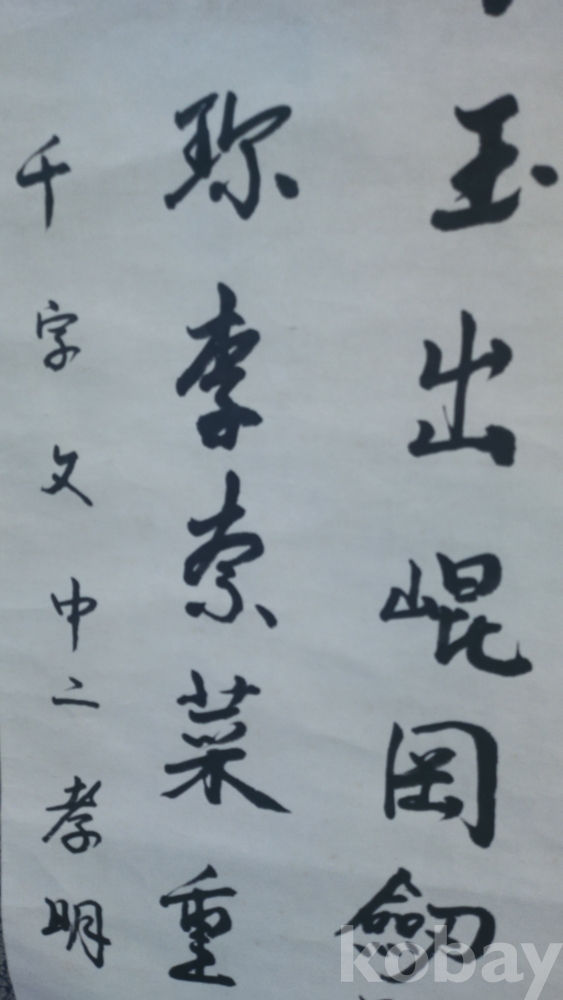 玉出崐岡劒
珎李柰菜重
千字文中二孝明
kobay